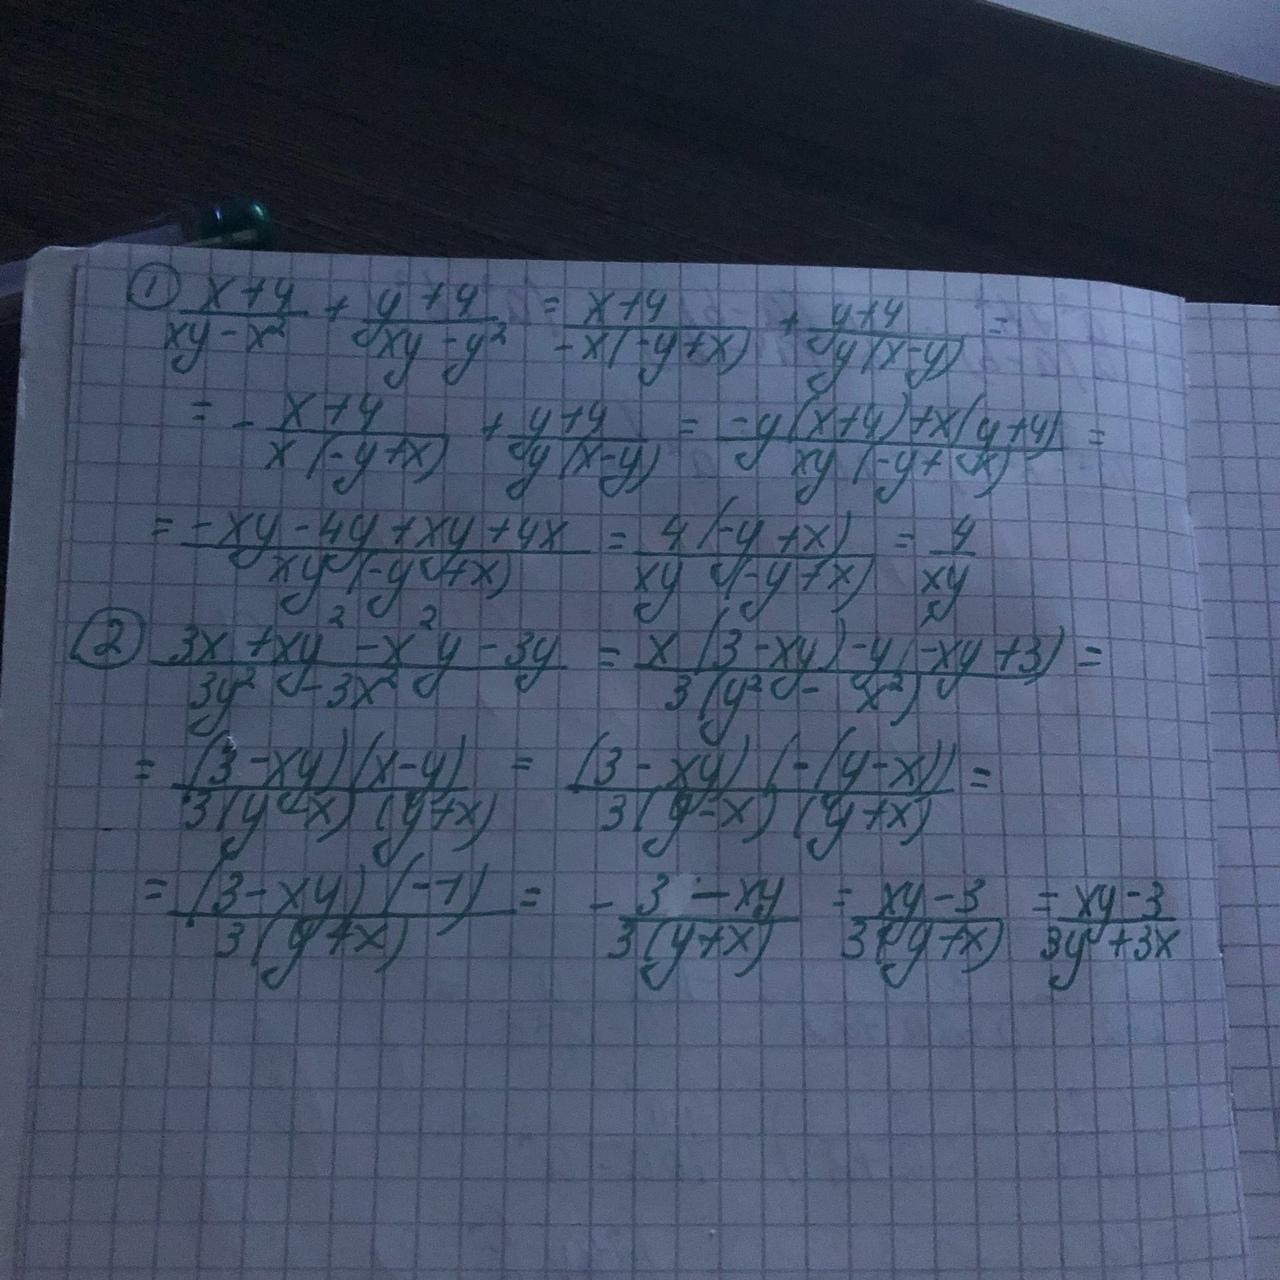 ① (x+4)/(xy-x²) + (y+4)/(xy-y²) = (x+4)/(-x(-y+x)) + (y+4)/(y(x-y)) =
= - (x+4)/(x(-y+x)) + (y+4)/(y(x-y)) = (-y(x+4)+x(y+4))/(xy(-y+x)) =
= (-xy-4y+xy+4x)/(xy(-y+x)) = (4(-y+x))/(xy(-y+x)) = 4/(xy)
② (3x+xy²-x²y-3y)/(3y²-3x²) = (x(3-xy)-y(-xy+3))/(3(y²-x²)) =
= ((3-xy)(x-y))/(3(y-x)(y+x)) = ((3-xy)(-(y-x)))/(3(y-x)(y+x)) =
= ((3-xy)(-1))/(3(y+x)) = - (3-xy)/(3(y+x)) = (xy-3)/(3(y+x)) = (xy-3)/(3y+3x)